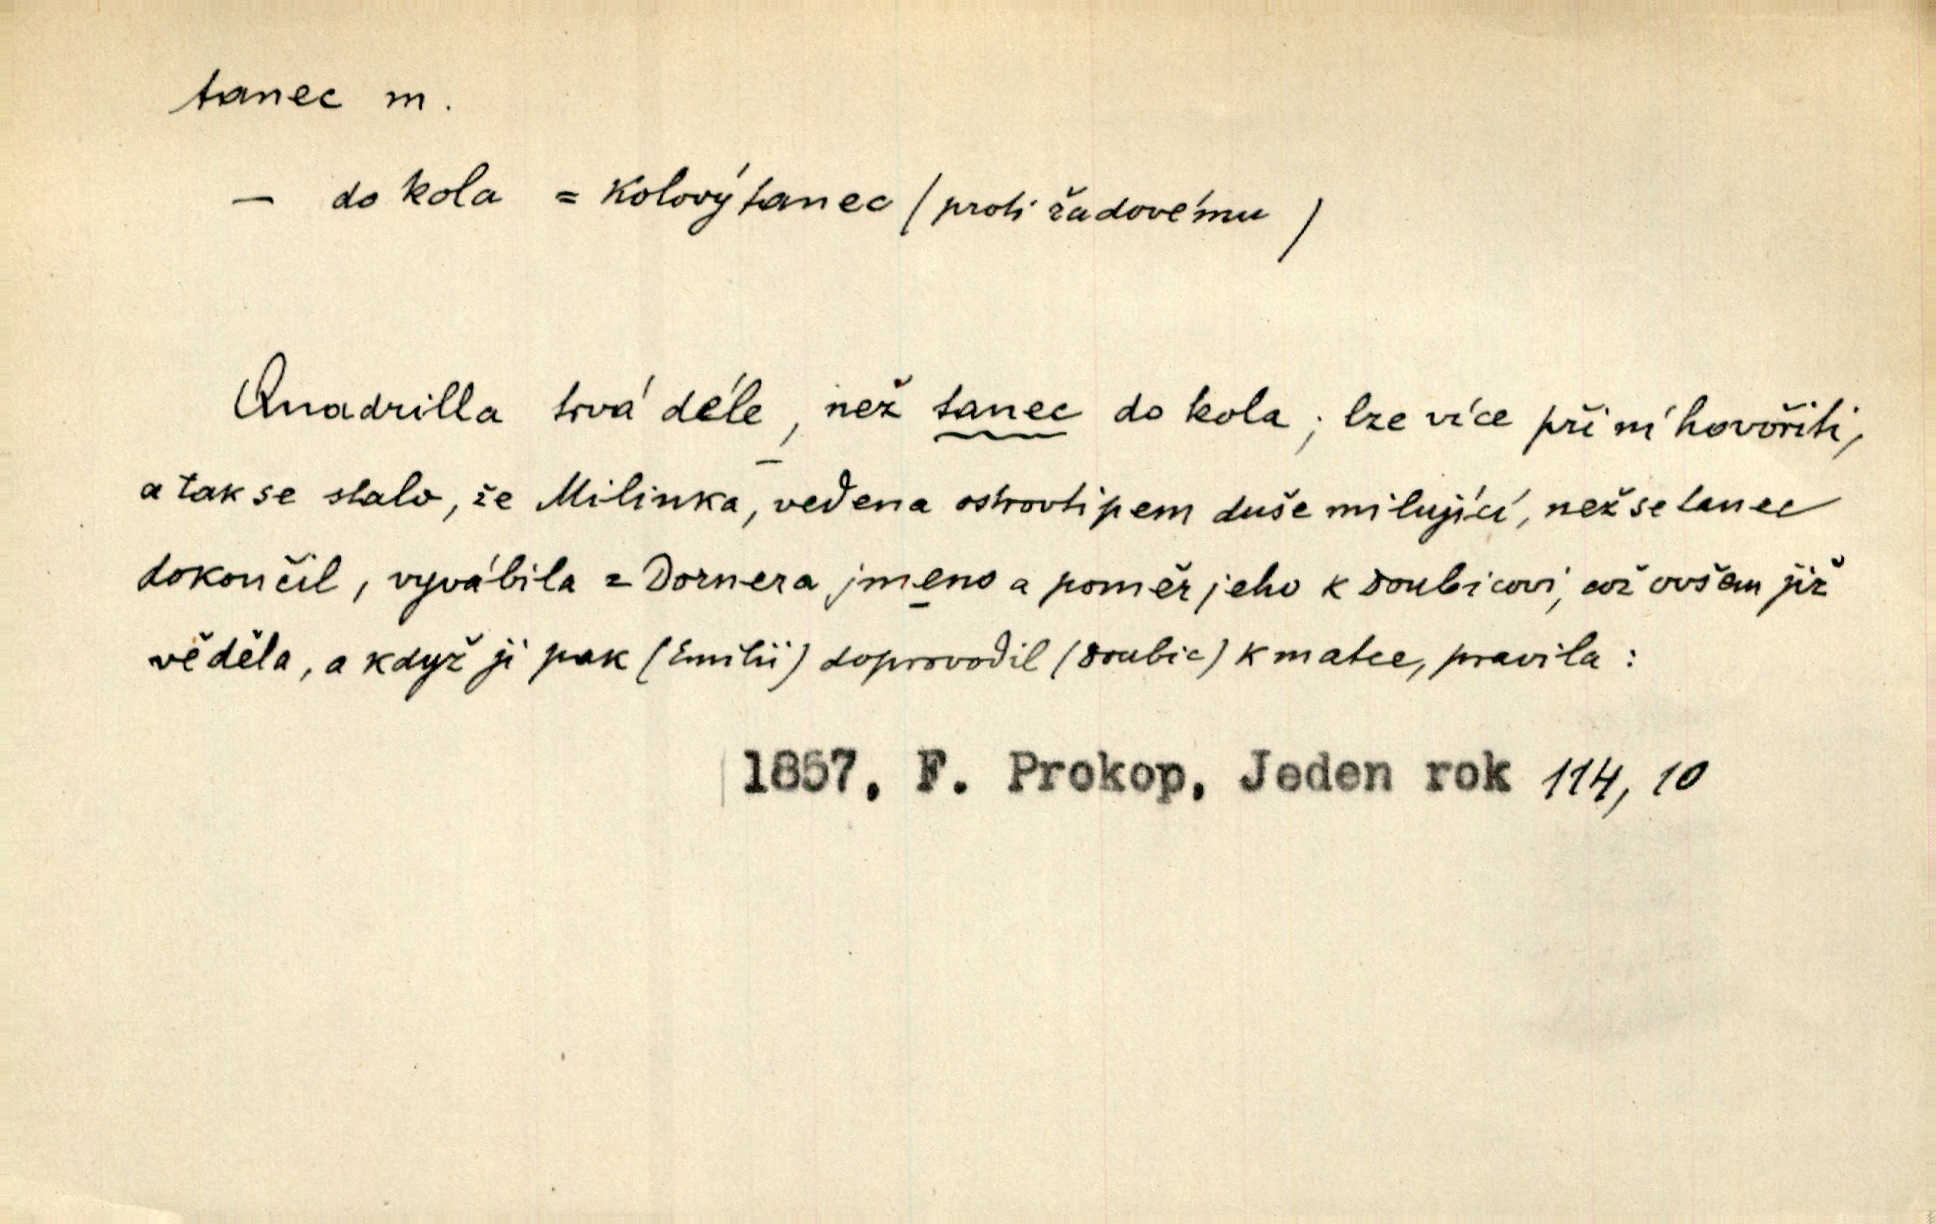 tanec m.
— do kola = kolový tanec (proti řadovému)
Quadrilla trvá déle, než tanec do kola; lze více při ní hovořiti,
a tak se stalo, že Milinka, vedena ostrovtipem duše milující, než se tanec
dokončil, vyvábila z Dornera jmeno a poměr jeho k Doubicovi, což ovšem již
věděla, a když ji pak (Emilii) doprovodil (Doubic) k matce, pravila:
1857, F. Prokop, Jeden rok 114, 10